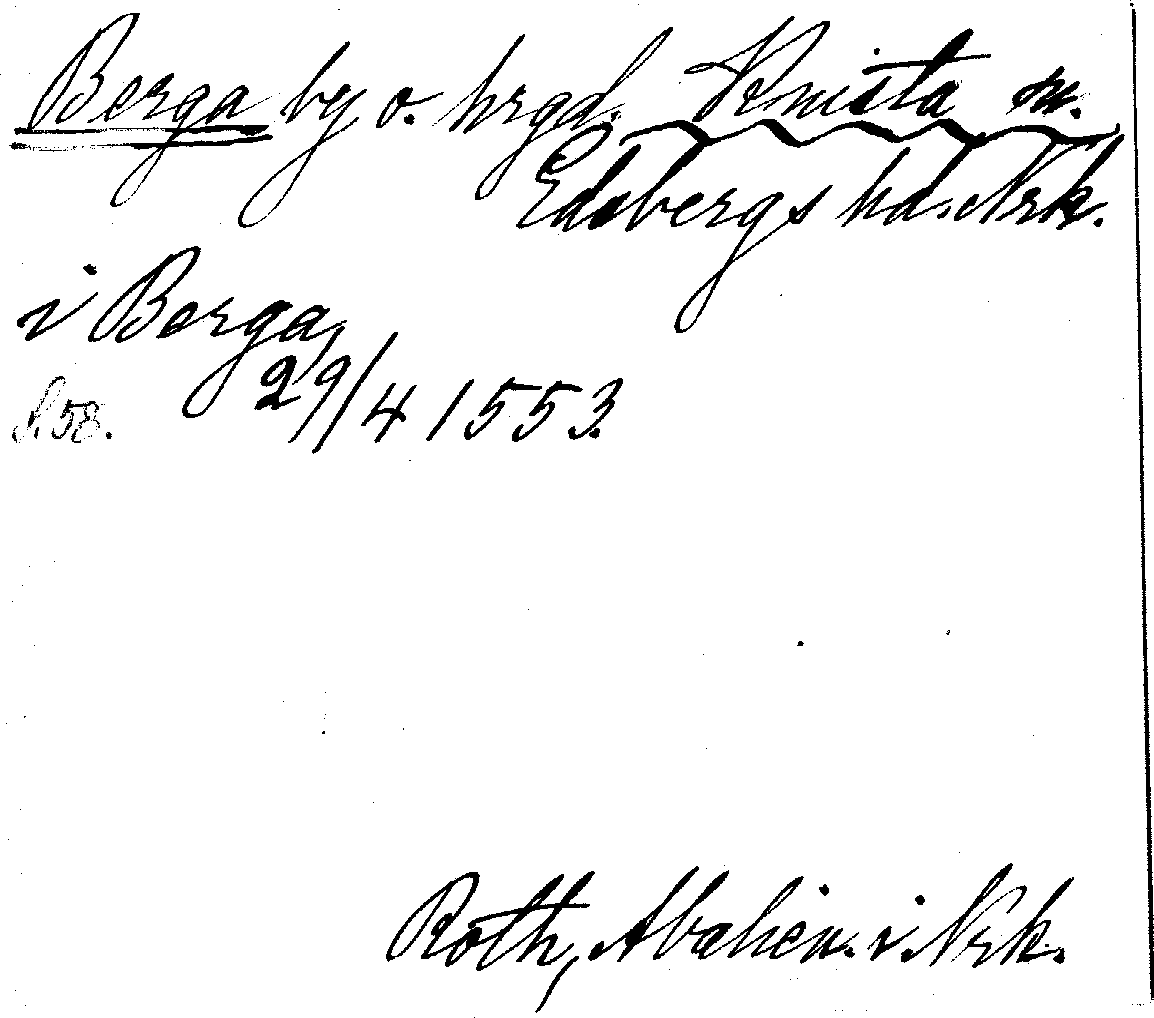 Berga by o. hrgd. Knista sn.
Edsbergs hd. Nrk.
i Berga
29/4 1553.
S. 58.
Roth, i Nrk.